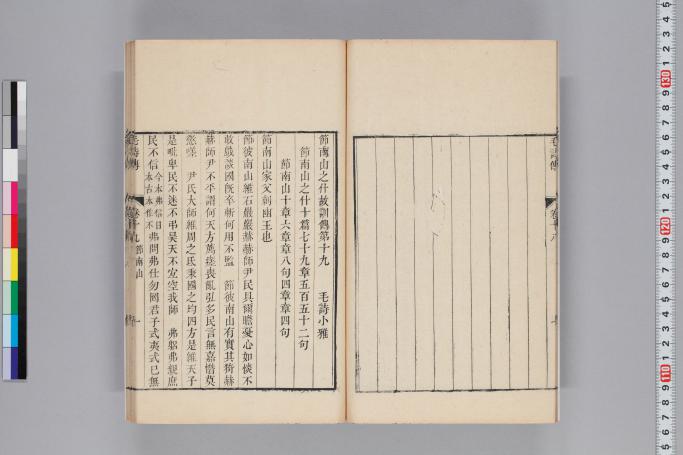 節南山之什故訓傳第十九 毛詩小雅
節南山之什十篇七十九章五百五十二句
節南山十章六章章八句四章章四句
節南山家父刺幽王也
節彼南山維石巖巖赫赫師尹民具爾瞻憂心如惔不
敢戲談國旣卒斬何用不監 節彼南山有實其猗赫
赫師尹不平謂何天方薦瘥喪亂弘多民言無嘉憯莫
懲嗟 尹氏大師維周之氐秉國之均四方是維天子
是毗卑民不迷不弔昊天不宜空我師 弗躬弗親庶
民不信 弗問弗仕勿罔君子式夷式已無
毛詩傳 卷十九 節南山 一
毛詩傳 卷十八